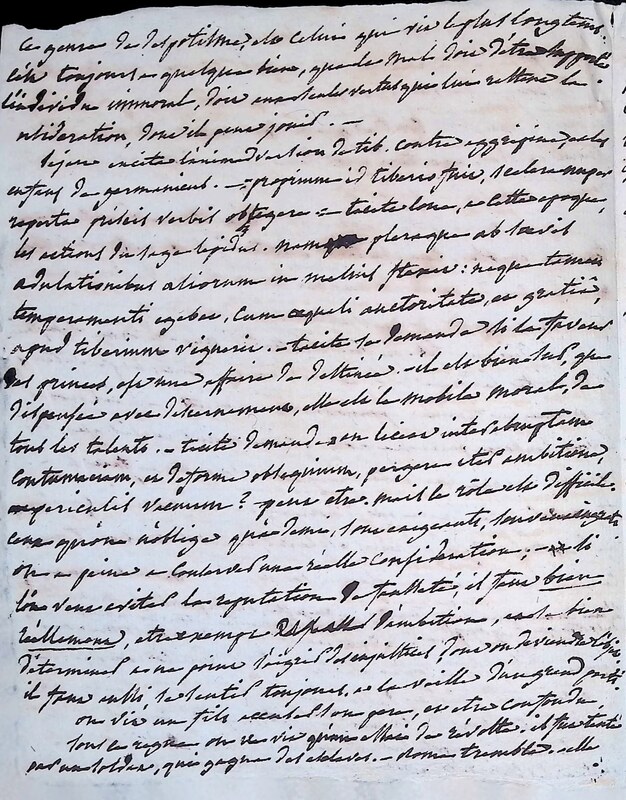 ce genre de despotisme, et celui qui vit le plus longtems.
c'est toujours quelque bien, que le mal doit d'être supporté
l'individu immoral, doit aux seules vertus qui lui restent la
considération, dont il peut jouir. —
Sejan excite l'animadversion de tib. contre aggripine, et les
enfans de germanicus. — proprium id tiberio fuit, scelera nuper
reperta priscis verbis obtegere = tacite loue, à cette époque,
les actions du sage lepidus. nam pleraque ab saevis
adulationibus aliorum in melius flexit : neque tamen
temperamenti egebat, cum aequali auctoritate, et gratiâ,
apud tiberium viguerit. — tacite se demande si la faveur
des princes, est une affaire de destinée. — il est bien sur, que
dispensée avec discernement, elle est le mobile moral, de
tous les talents. — tacite demande an liceat inter abruptam
contumaciam, et deforme obsequium, pergere iter ambitione,
ac periculis vacuum ? peut être, mais le rôle est difficile.
ceux qu'on n'oblige qu'à demi, sont exigeants, souvent ingrats
on a peine à conserver une réelle considération. — si
l'on veut eviter la reputation de fausseté, il faut bien
réellement, etre exempt d'ambition, et se bien
determiner à ne point s'aigrir des injustices, dont on deviendra l'objet
il faut enfin, se sentir toujours, à la veille d'un grand parti
on vit un fils accuser son pere, et etre confondu.
sous ce regne, on ne vit qu'un essai de révolte. il fut tenté
par un soldat, qui gagna des esclaves. — rome trembla. elle